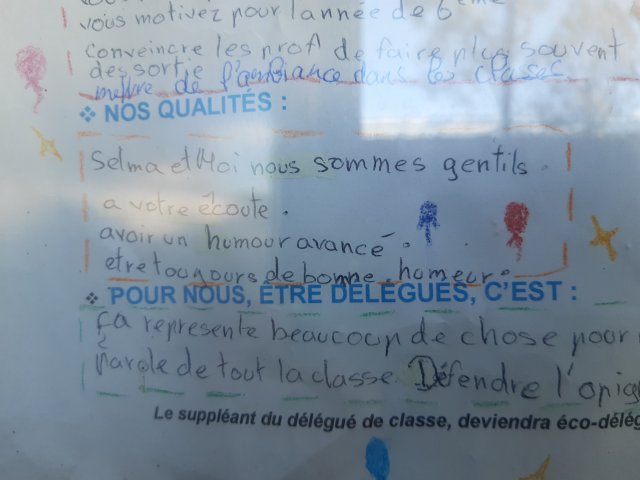 vous motivez pour l'année de 6ème
conveincre les profl de faire plus souvent
des sortie
mettre de l'ambiance dans les classes.
❖ NOS QUALITÉS :
Selma et Moi nous sommes gentils.
a votre écoute.
avoir un humour avancé.
etre toujours de bonne humeur.
❖ POUR NOUS, ÊTRE DÉLÉGUÉS, C'EST :
ça represente beaucoup de chose pour
parole de tout la classe. Défendre l'opig
Le suppléant du délégué de classe, deviendra éco-délég